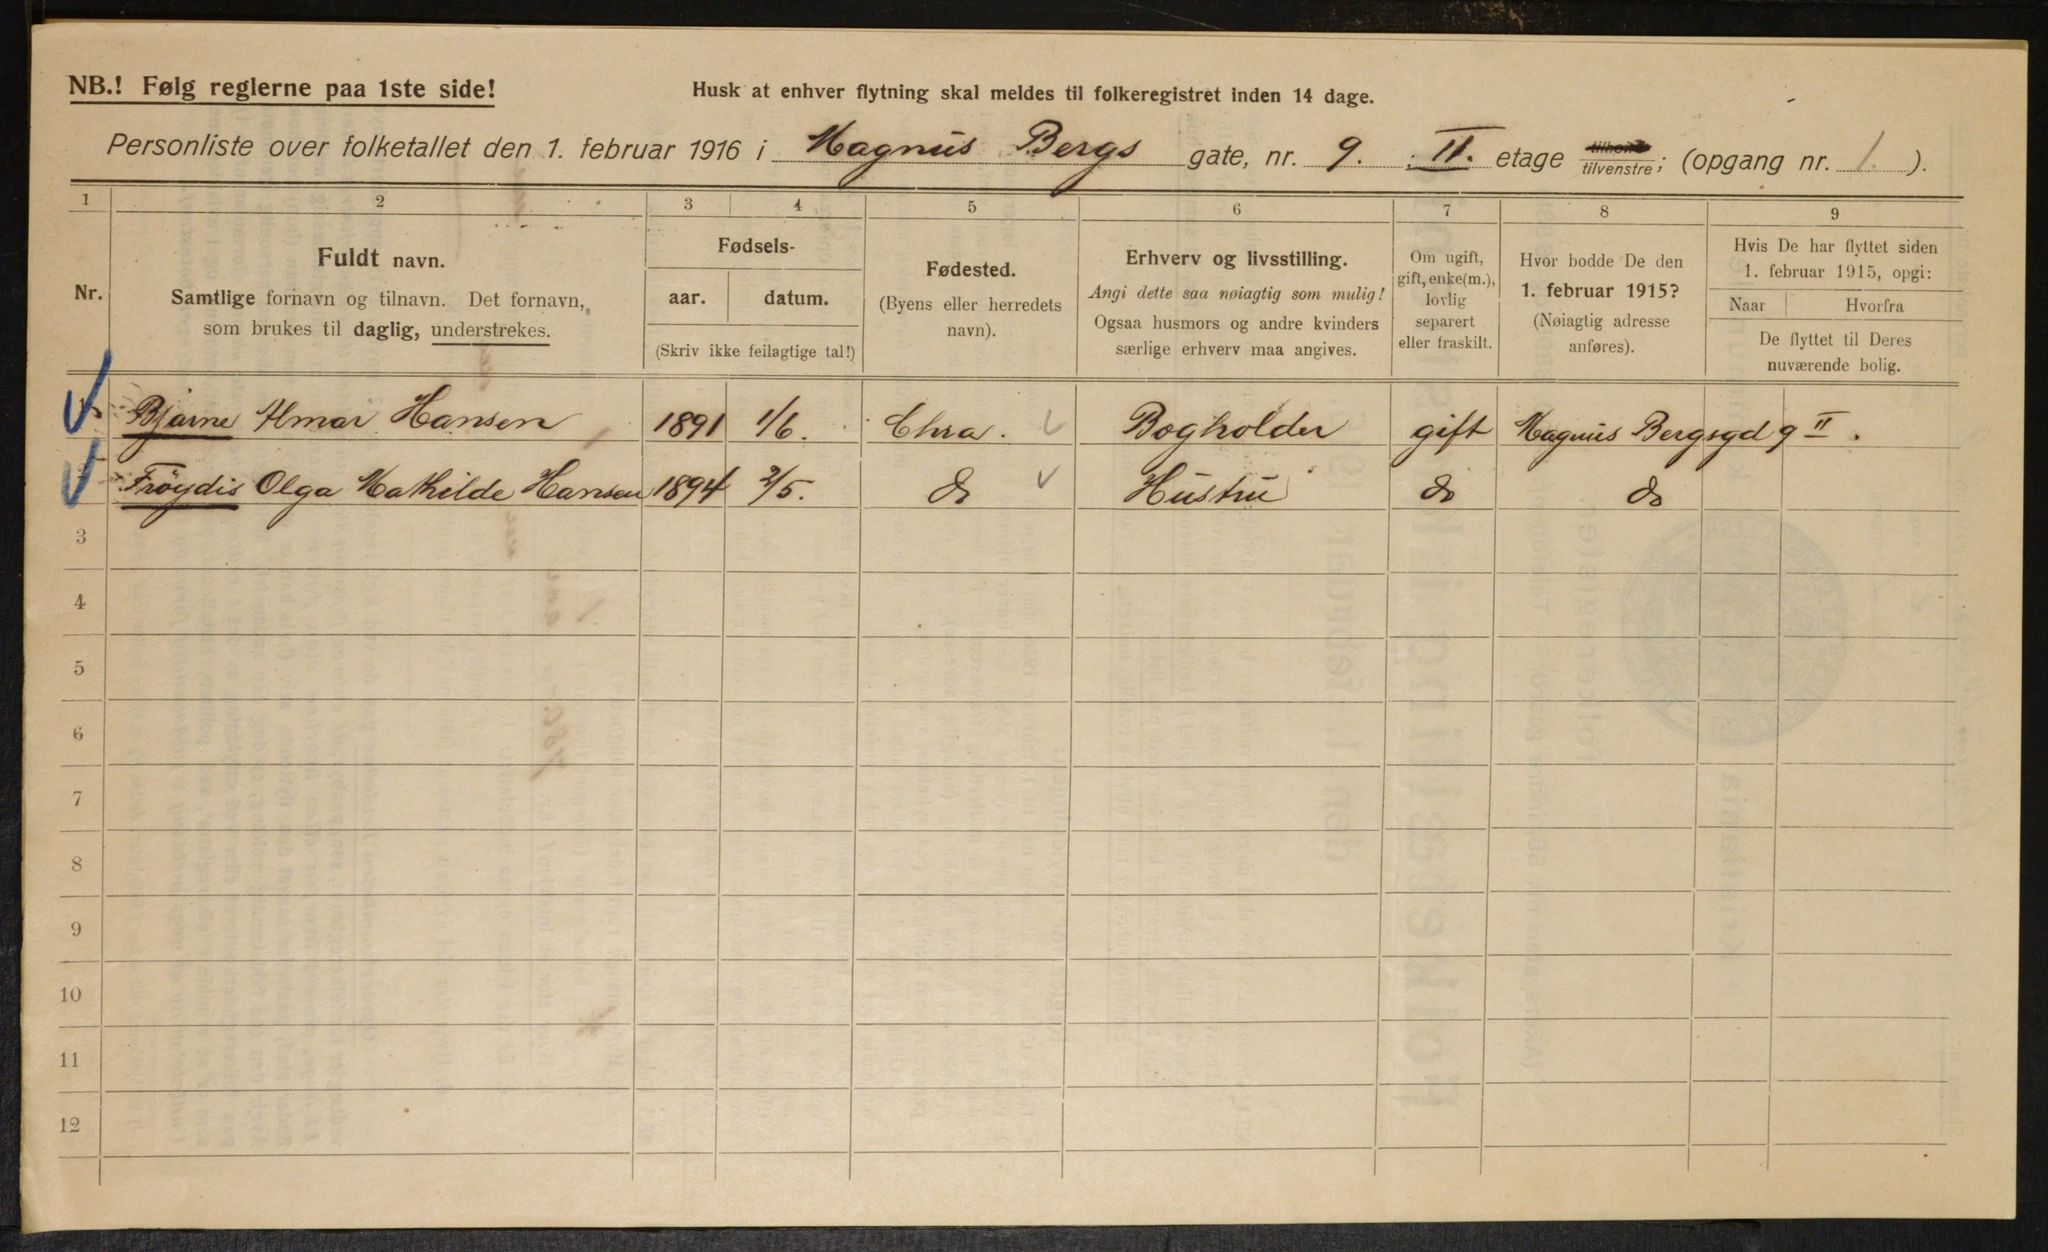 NB.! Følg reglerne paa 1ste side!
Husk at enhver flytning skal meldes til folkeregistret inden 14 dage.
Personliste over folketallet den 1. februar 1916 i Magnus Bergs gate, nr. 9. II. etage tilhøire/tilvenstre; (opgang nr. 1).
1 2 3 4 5 6 7 8 9
Nr.
Fuldt navn.
Samtlige fornavn og tilnavn. Det fornavn,
som brukes til daglig, understrekes.
Fødsels-
aar. datum.
(Skriv ikke feilagtige tal!)
Fødested.
(Byens eller herredets
navn).
Erhverv og livsstilling.
Angi dette saa nøiagtig som mulig!
Ogsaa husmors og andre kvinders
særlige erhverv maa angives.
Om ugift,
gift, enke(m.),
lovlig
separert
eller fraskilt.
Hvor bodde De den
1. februar 1915?
(Nøiagtig adresse
anføres).
Hvis De har flyttet siden
1. februar 1915, opgi:
Naar Hvorfra
De flyttet til Deres
nuværende bolig.
Bjarne Almar Hansen 1891 1/6. Chra. Bogholder gift Magnus Bergsgd 9 II.
Frøydis Olga Mathilde Hansen 1894 2/5. do Hustru do do
3
4
5
6
7
8
9
10
11
12